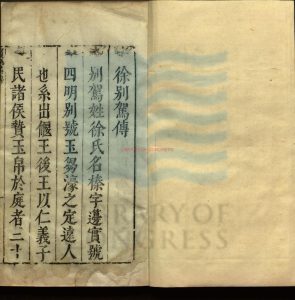 徐別駕傳
別駕姓徐氏名榛字邊實號
四明別號玉芻濠之定遠人
也系出偃王後王以仁義子
民諸侯贄玉帛於庭者三十
LIBRARY OF
CONGRESS